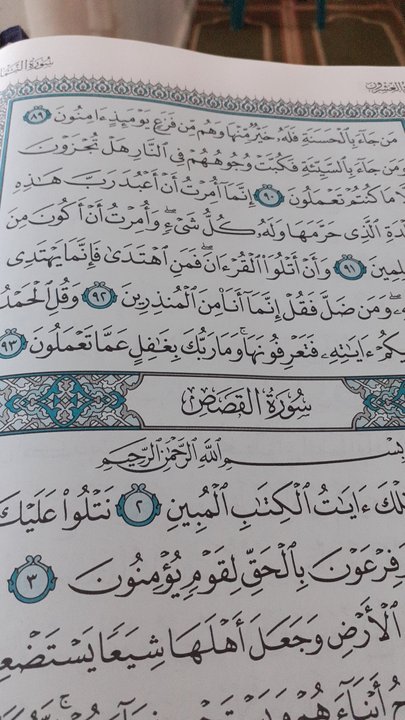 سُورَةُ النَّمْلِ
مَن جَآءَ بِٱلْحَسَنَةِ فَلَهُۥ خَيْرٌ مِّنْهَا وَهُم مِّن فَزَعٍ يَوْمَئِذٍ ءَامِنُونَ ٨٩
وَمَن جَآءَ بِٱلسَّيِّئَةِ فَكُبَّتْ وُجُوهُهُمْ فِى ٱلنَّارِ هَلْ تُجْزَوْنَ
إِلَّا مَا كُنتُمْ تَعْمَلُونَ ٩٠ إِنَّمَآ أُمِرْتُ أَنْ أَعْبُدَ رَبَّ هَٰذِهِ
لْدَةِ ٱلَّذِى حَرَّمَهَا وَلَهُۥ كُلُّ شَىْءٍ ۖ وَأُمِرْتُ أَنْ أَكُونَ مِنَ
لِمِينَ ٩١ وَأَنْ أَتْلُوَا۟ ٱلْقُرْءَانَ ۖ فَمَنِ ٱهْتَدَىٰ فَإِنَّمَا يَهْتَدِى
هِۦ ۖ وَمَن ضَلَّ فَقُلْ إِنَّمَآ أَنَا۠ مِنَ ٱلْمُنذِرِينَ ٩٢ وَقُلِ ٱلْحَمْدُ
يكُمْ ءَايَٰتِهِۦ فَتَعْرِفُونَهَا ۚ وَمَا رَبُّكَ بِغَٰفِلٍ عَمَّا تَعْمَلُونَ ٩٣
سُورَةُ القَصَصِ
بِسْمِ ٱللَّهِ ٱلرَّحْمَٰنِ ٱلرَّحِيمِ
تِلْكَ ءَايَٰتُ ٱلْكِتَٰبِ ٱلْمُبِينِ ٢ نَتْلُوا۟ عَلَيْكَ
وَفِرْعَوْنَ بِٱلْحَقِّ لِقَوْمٍ يُؤْمِنُونَ ٣
ٱلْأَرْضِ وَجَعَلَ أَهْلَهَا شِيَعًا يَسْتَضْعِ